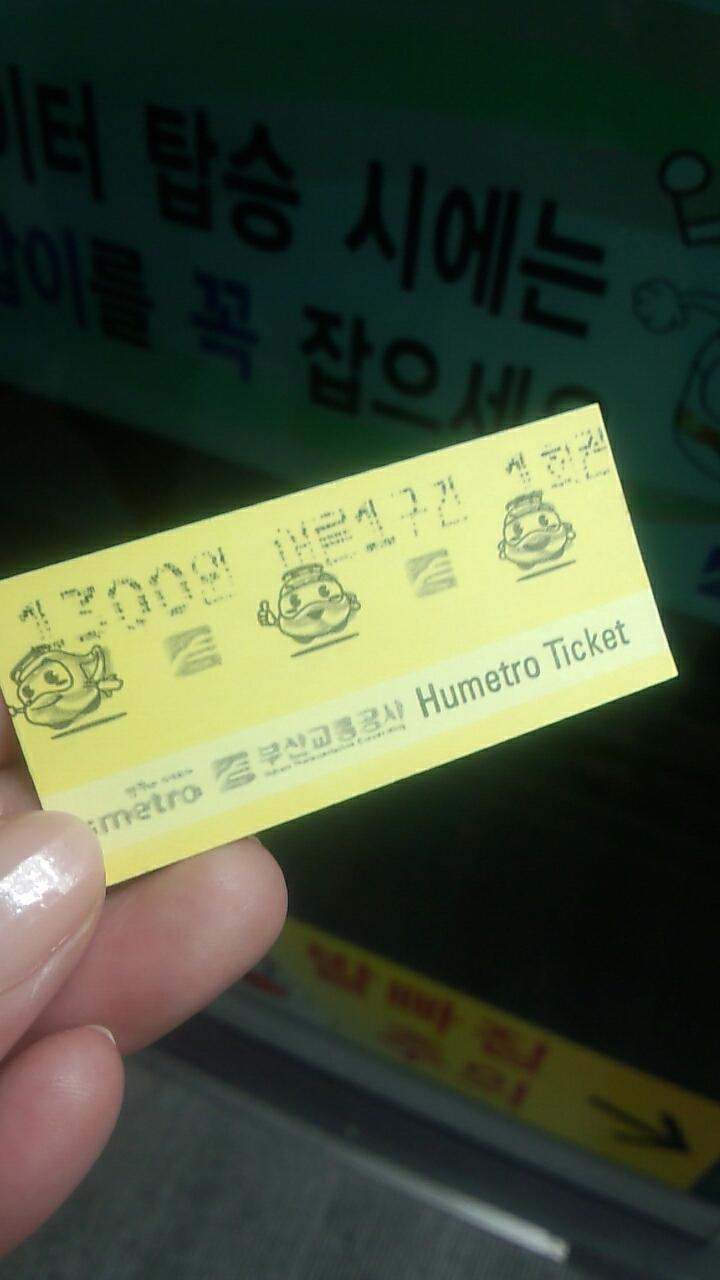 이터 탑승 시에는
잡이를 꼭 잡으세요
1300원 어른1구간 1회권
Humetro 부산교통공사 Humetro Ticket
발빠짐
주의